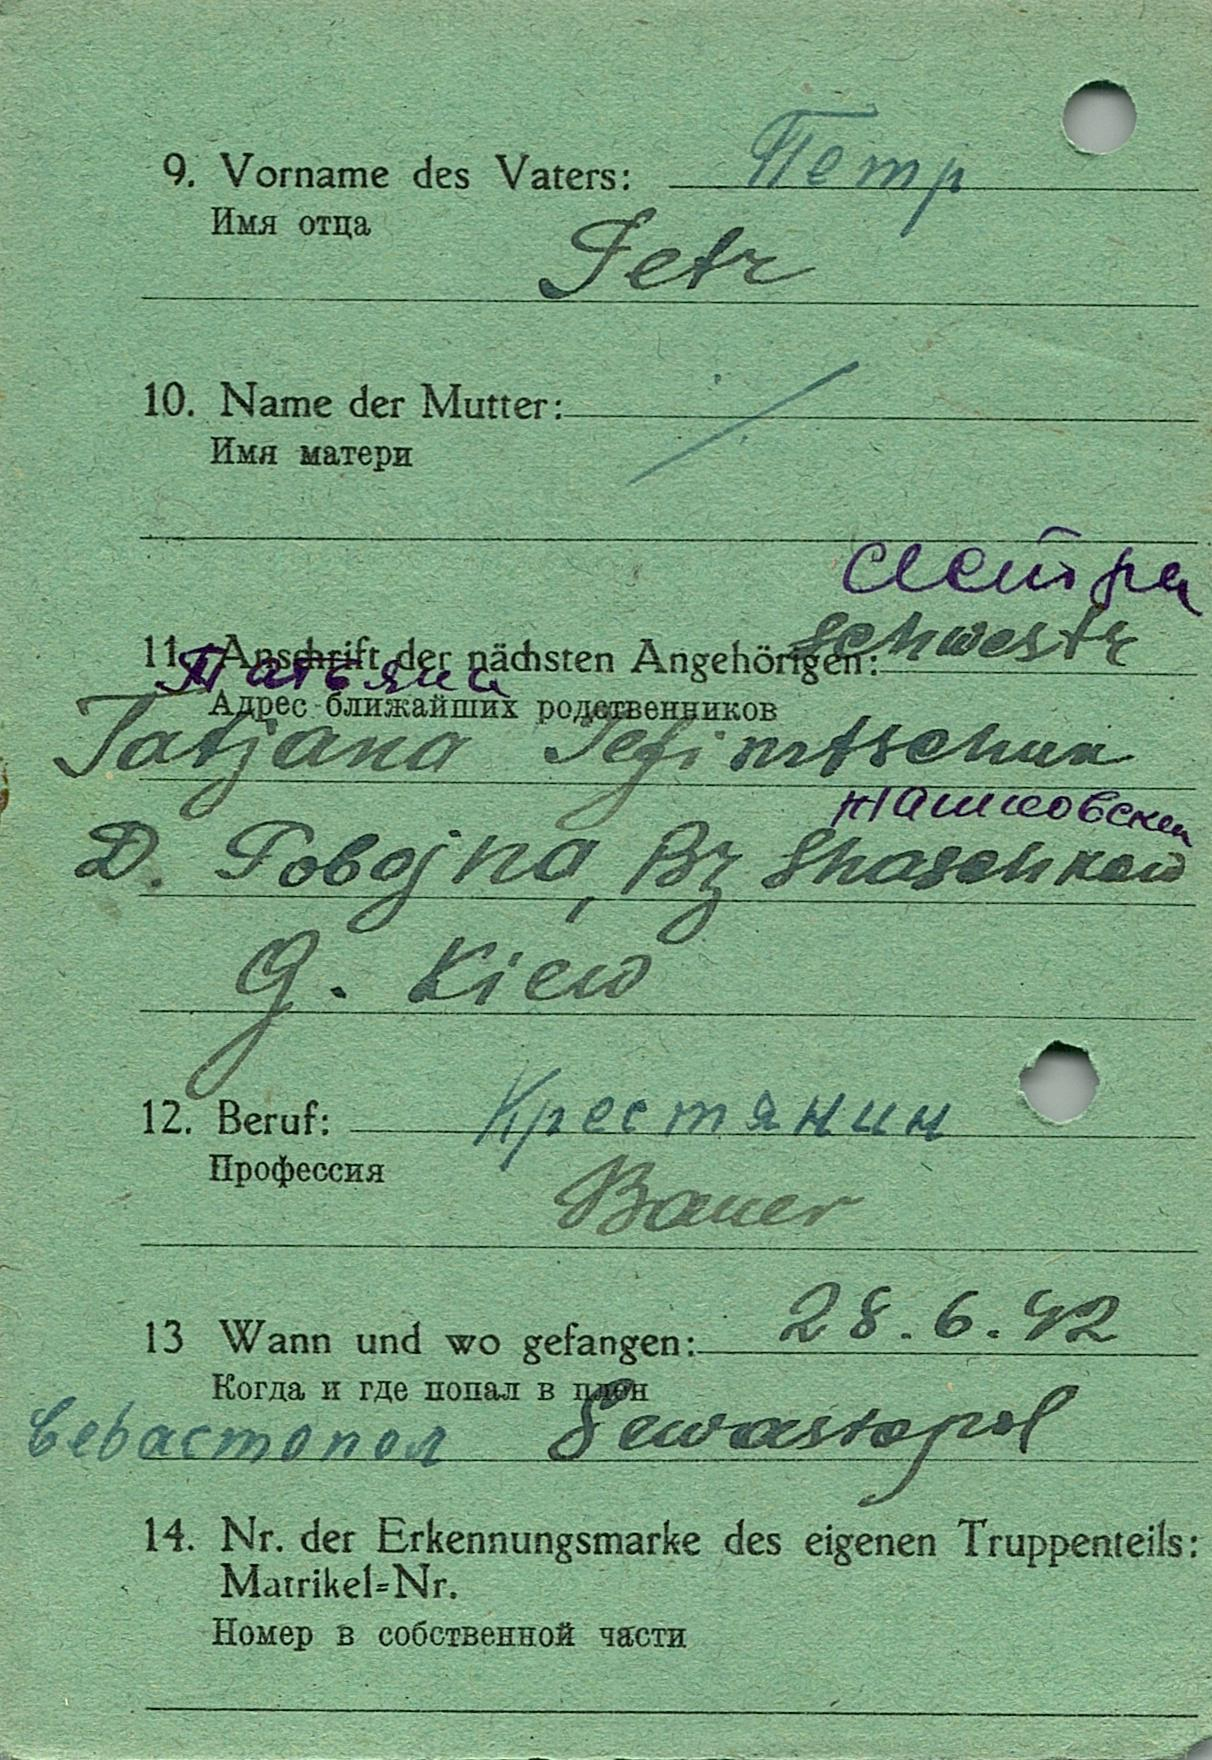 9. Vorname des Vaters: Петр
Имя отца
Petr
10. Name der Mutter: /
Имя матери
сестра
Schwestr
11. Anschrift der nächsten Angehörigen:
Татьяна
Адрес ближайших родственников
Tatjana Jefimtschuk
жашковски
D. Pobojna, Bz Shaschkow
G. Kiew
12. Beruf: Крестянин
Профессия
Bauer
13 Wann und wo gefangen: 28.6.42
Когда и где попал в плен
Севастопол Sewastopol
14. Nr. der Erkennungsmarke des eigenen Truppenteils:
Matrikel=Nr.
Номер в собственной части